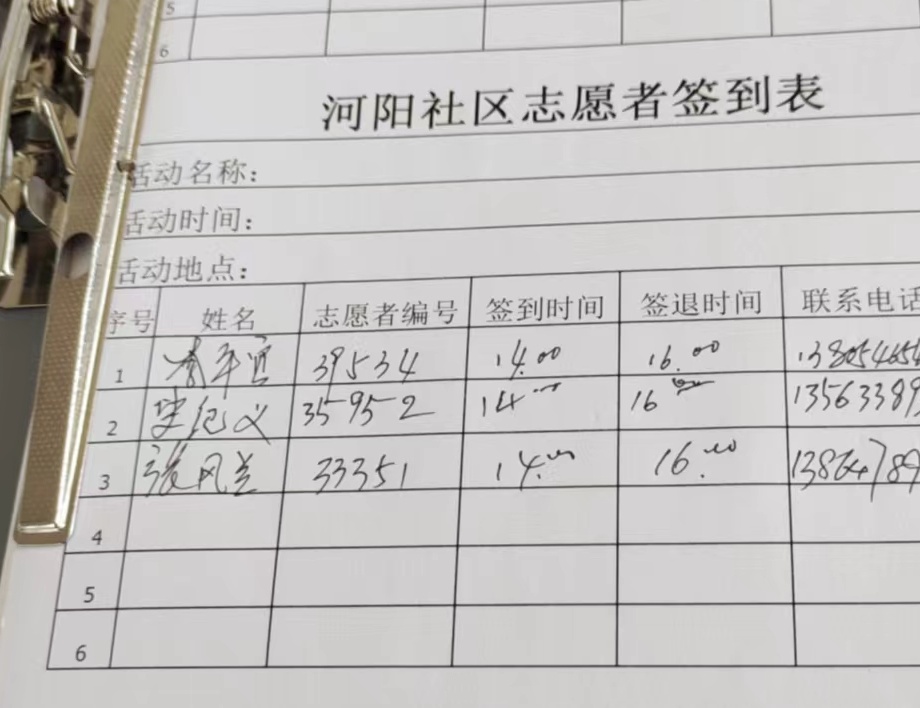 5
6
河阳社区志愿者签到表
活动名称：
活动时间：
活动地点：
序号 姓名 志愿者编号 签到时间 签退时间 联系电话
1 39534 14.00 16.00
2 35952 14 16 13563389
3 张风兰 33351 14.00 16.00
4
5
6